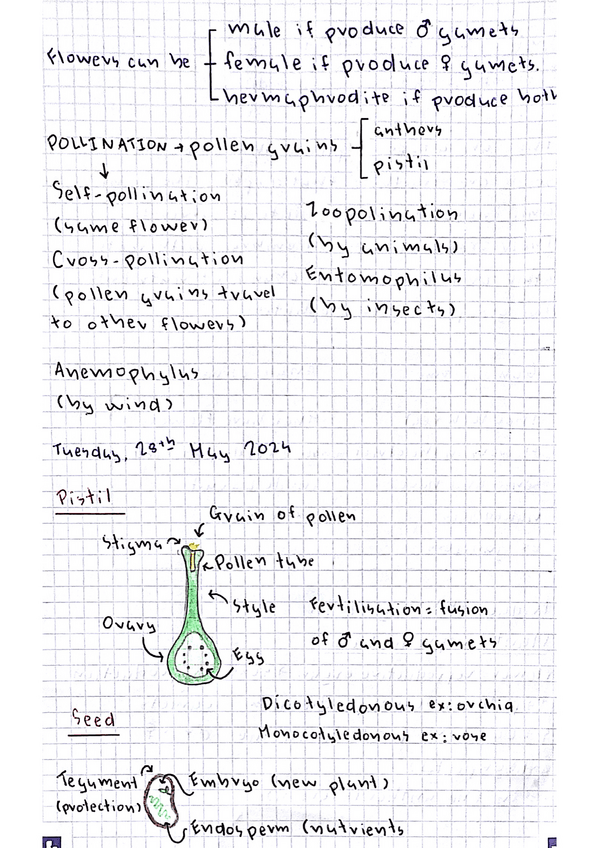 Flowers can be
male if produce ♂ gamets
female if produce ♀ gamets.
hermaphrodite if produce both
POLLINATION → pollen grains
anthers
pistil
↓
Self-pollination
(same flower)
Cross-pollination
(pollen grains travel
to other flowers)
Zoopolination
(by animals)
Entomophilus
(by insects)
Anemophylus
(by wind)
Tuesday, 28th May 2024
Pistil
Grain of pollen
Stigma
Pollen tube
Style
Ovary
Egg
Fertilisation = fusion
of ♂ and ♀ gamets
Seed
Dicotyledonous ex: orchia
Monocotyledonous ex: rose
Tegument
(protection)
Embryo (new plant)
Endosperm (nutrients